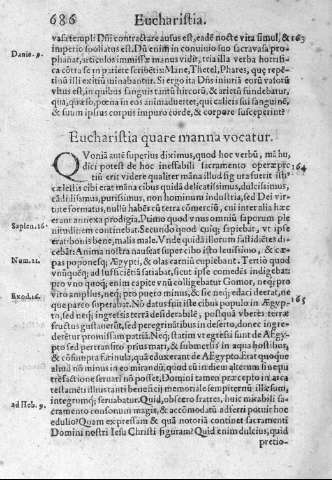 686 Eucharistia.
vasa templi Dñi contractare ausus est, eadē nocte vita simul, & 163
imperio spoliatus est. Dū enim in conuiuio suo sacra vasa pro-
Danie. 9.
phanat, articulos immissæ manus vidit, tria illa verba horrifi-
ca corā se in pariete scribētis: Mane, Thetel, Phares, quę repē-
tinū illi exitiū minabantur. Si ergo ita Dñs iniuriā eorū valorū
vltus est, in quibus sanguis tantū hircorū, & arietū fundebatur,
qua, quæso, pœna in eos animaduertet, qui calicis sui sanguinē,
& suum ipsius corpus impuro corde, & corpore susceperint?
Eucharistia quare manna vocatur.
QVoniā autē superius diximus, quod hoc verbū, mā hu,
dici potest de hoc ineffabili sacramento operæpre- 164
tiū erit videre qualiter māna illud sig urā fuerit isti'
cælestis cibi erat māna cibus quidā delicatissimus, dulcissimus,
cādidissimus, purissimus, non hominum industria, sed Dei vir-
tute formatus, nullū habēs cū terra cōmerciū, cui interalia hæc
erant annexa prodigia. Primo quod vnus omniū saporum ple
Sapien. 16.
nitudinem continebat. Secundo quod cuiq; sapiebat, vt ipse
erat: bonis bene, malis male. Vnde quidā illorum fastidiētes di-
cebāt: Anima nostra nauseat super cibo isto leuissimo, & cæ-
Num. 21.
pas poponesq; Ægypti, & olas carniū cupiebant. Tertio quod
vnūquēq; ad sufficiētiā satiabat, sicut ipse comedēs indigebat:
pro vno quoq; enim capite vnū colligebatur Gomor, neq; pro
Exod. 16.
viro amplius, neq; pro puero minus, & sic neq; edaci deerat, ne
que parce superabat. Nō datus fuit iste cibus populo in Ægyp- 165
to, sed neq; ingressis terrā desiderabilē, postquā vberes terræ
fructus gustauerūt, sed peregrinātibus in deserto, donec ingre-
derētur promissam patriā. Neq; statim vt egressi sunt de Æ gy-
pto sed pertransito prius mari, & submersis in aqua hostibus,
& cōsumpta farinula, quā eduxerant de AEgypto. Erat quoque
aliud nō minus in eo mirandū; quod cū in diem alterum sine pu
trefactione seruari nō posset, Domini tamen præcepto in arca
testamēti illustranti beneficij memoriale sempiternū illæsum,
integrumq; seruabatur. Quid, obsecro fratres, huic mirabili sa-
cramento consonum magis, & accōmodatū adferri potuit hoc
ad Heb. 9.
edulio? Quam expressam & quā notoriā continet sacramenti
Domini nostri Iesu Christi figuram? Quid enim dulcius, quid
pretio-